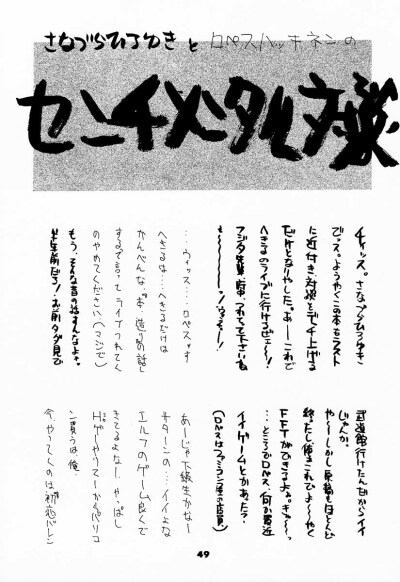 さなづらひろゆきとロペスハッキネンの
センチメンタル対談
チィッス。さなづらひろゆき
でっス。ようやくこの本もラスト
に近付き、対談をデッチ上げる
だけとなりやした。あーこれで
へきるのライブに行けるぜェー!!
フジタ先輩、車、つれてって下さいね
…ウィッス…ロペスっす
…へきるは…へきるだけは
かんべんな。"お"造"の話し
するって言ってライブつれてく
のやめてください(マジで)
もう、そんな昔の話すんなよォ。
半年前だろ!お前タダ見で
武道館行けたんだからイイ
じゃんか。
やーしかし原稿もほとんど
終ったし後はこれでよーやく
FFTができるよなぁ。きーっ。
…ところでロペス、何か最近
イイゲームとかあった?
(ロペスはファミコン屋の店員)
あーじゃ下級生かなー
サターンの…イイよな
エルフのゲーム良くで
きてるよなー。やっぱし
Hゲーやってーからパソコ
ン買うは、俺。
今、やってくのは初恋バレン
49